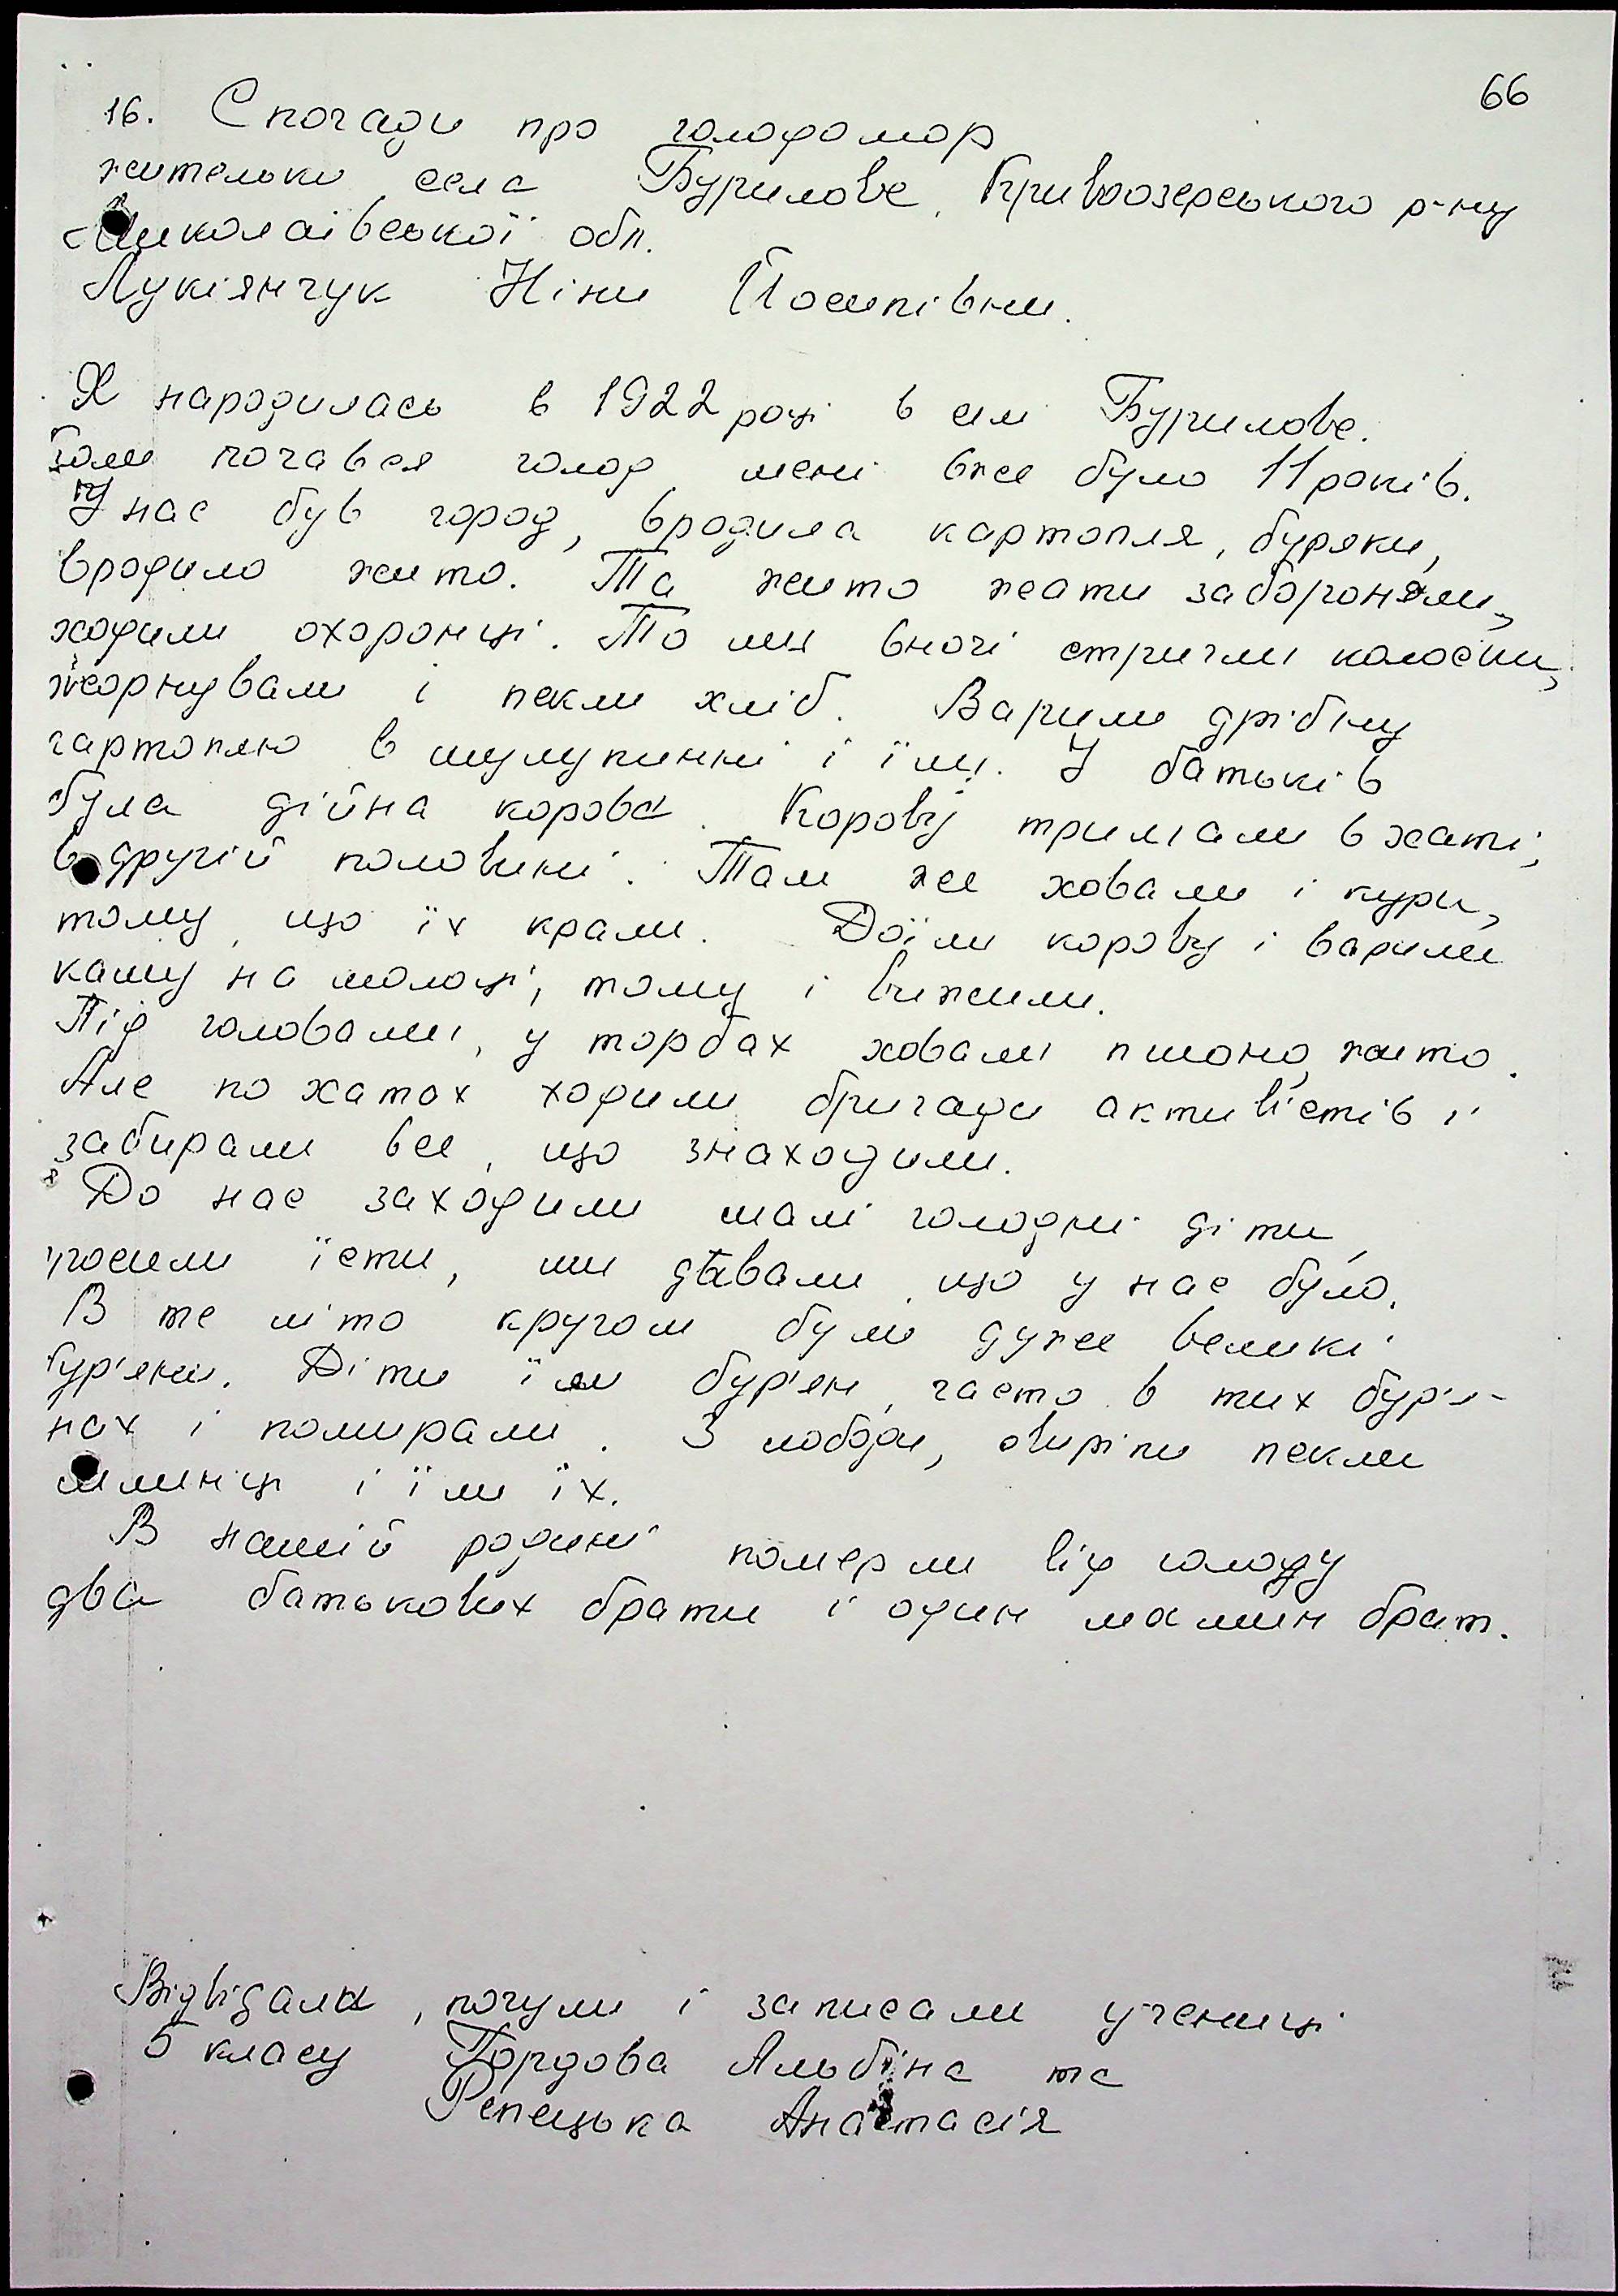 66
16. Спогади про голодомор
жительки села Бурилове, Кривоозерського р-ну
Миколаївської обл.
Лукіянчук Ніни Йосипівни.
Я народилась в 1922 році в с. Бурилове.
Коли почався голод мені вже було 11 років.
У нас був город, вродила картопля, буряки,
вродило жито. Та жито жати забороняли,
ходили охоронці. То ми вночі стригли колоски,
жорнували і пекли хліб. Варили дрібну
картоплю в шулупинні і їли. У батьків
була дійна корова. Корову тримали в хаті,
в другій половині. Там же ховали і кури,
тому що їх крали. Доїли корову і варили
кашу на молоці, тому і вижили.
Під головами, у торбах ховали пшоно, жито.
Але по хатах ходили бригади активістів і
забирали все, що знаходили.
До нас заходили малі голодні діти,
просили їсти, ми давали, що у нас було.
В те літо кругом були дуже великі
бур'яни. Діти їли бур'ян, часто в тих бур'я-
нах і помирали. З лободи, свиріпи пекли
млинці і їли їх.
В нашій родині померли від голоду
два батькових брати і один мамин брат.
Відвідали, почули і записали учениці
5 класу Гордова Альбіна та
Репецька Анастасія